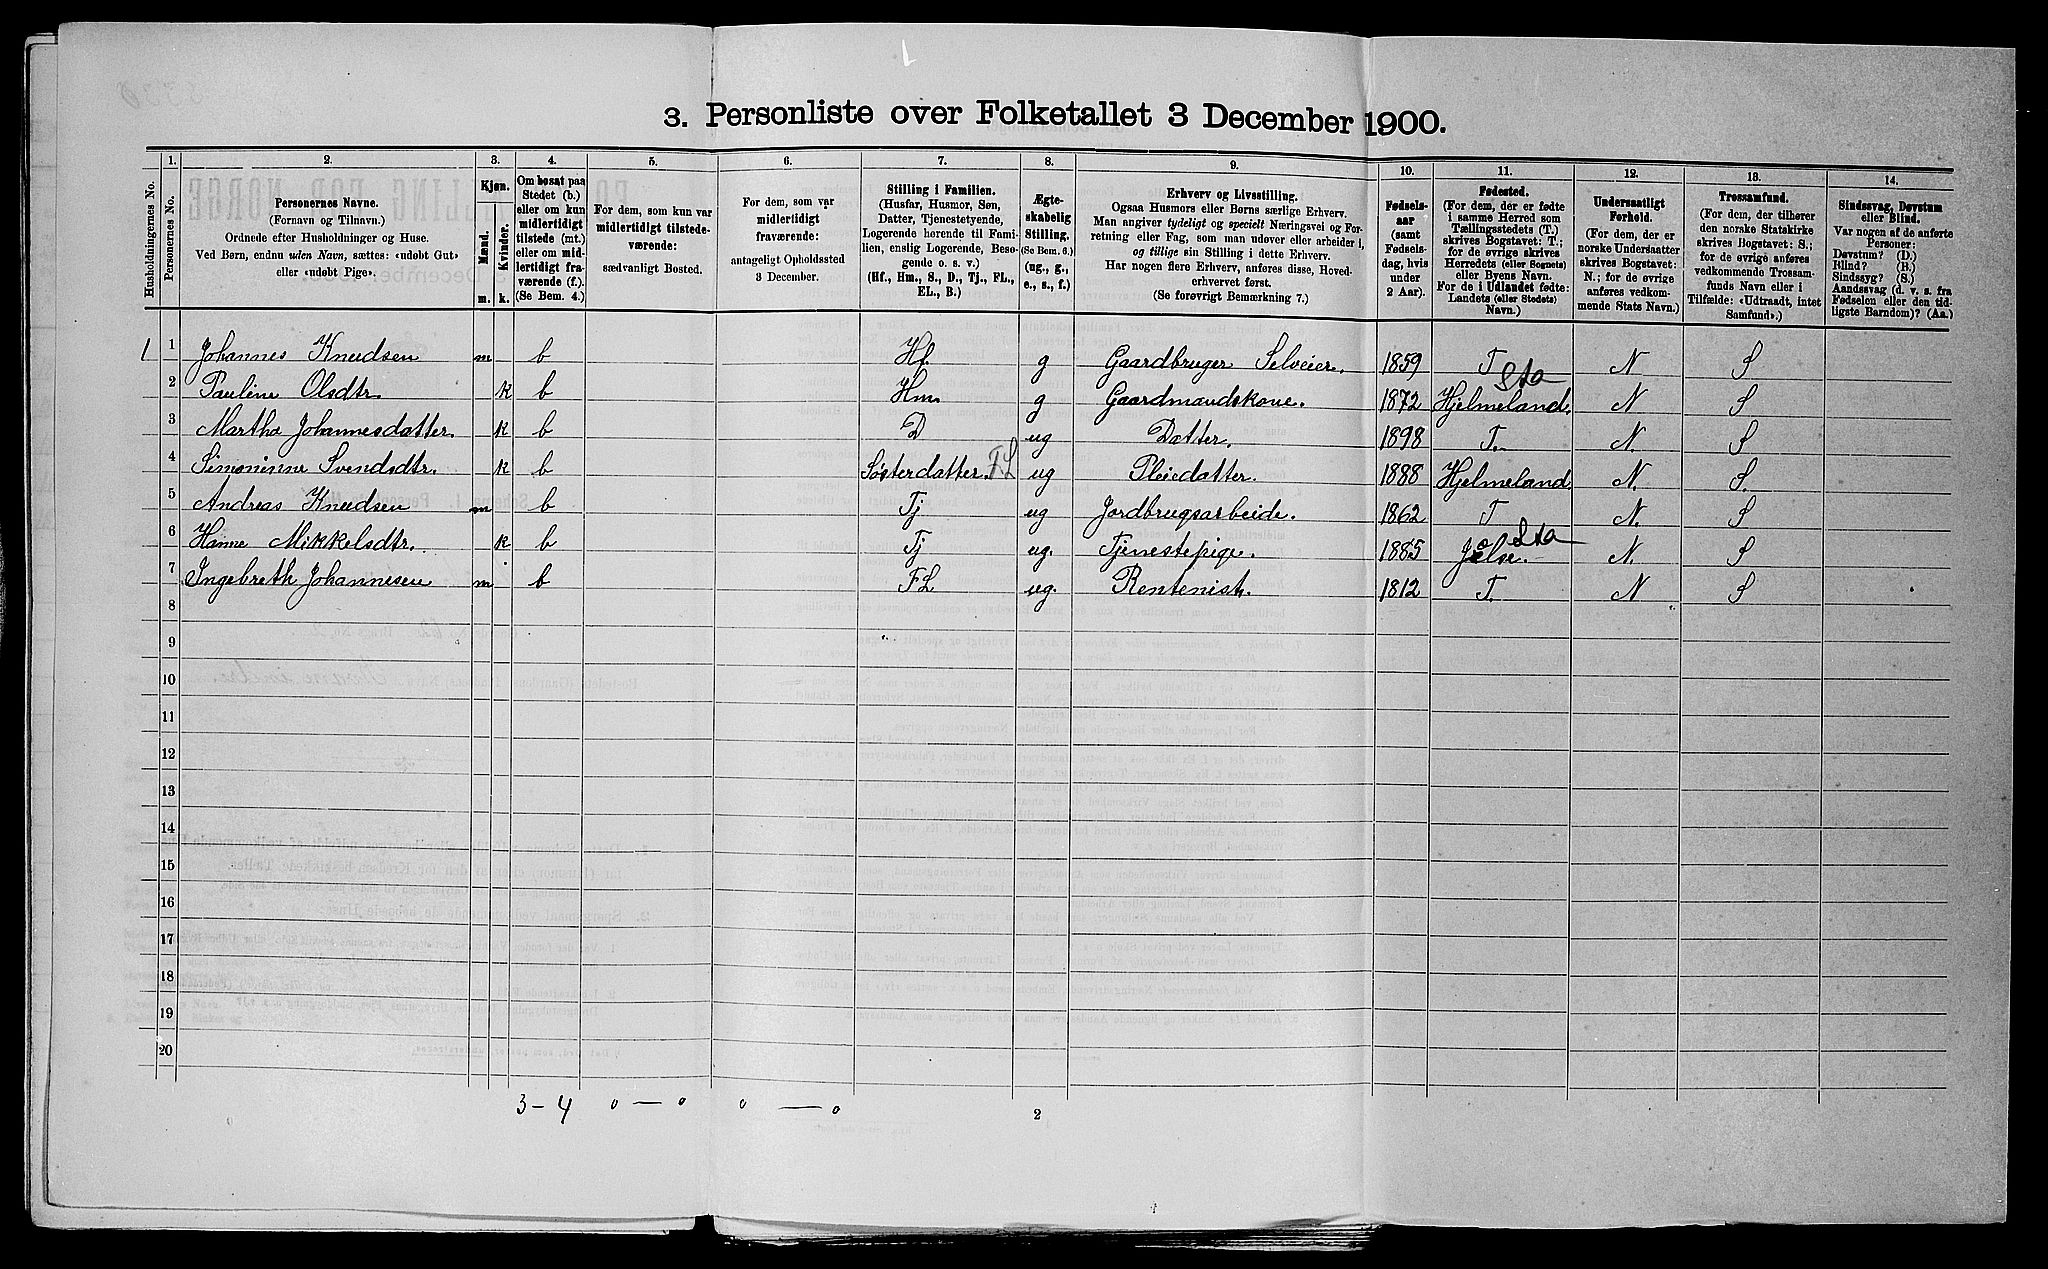 3. Personliste over Folketallet 3 December 1900.
Husholdningernes No.
1. Personernes No.
2. Personernes Navne.
(Fornavn og Tilnavn.)
Ordnede efter Husholdninger og Huse.
Ved Børn, endnu uden Navn, sættes: «udøbt Gut»
eller «udøbt Pige».
3. Kjøn.
Mænd. Kvinder.
m. k.
4. Om bosat paa
Stedet (b.)
eller om kun
midlertidigt
tilstede (mt.)
eller om mid-
lertidigt fra-
værende (f.).
(Se Bem. 4.)
5. For dem, som kun var
midlertidigt tilstede-
værende:
sædvanligt Bosted.
6. For dem, som var
midlertidigt
fraværende:
antageligt Opholdssted
3 December.
7. Stilling i Familien.
(Husfar, Husmor, Søn,
Datter, Tjenestetyende,
Logerende hørende til Fami-
lien, enslig Logerende, Besø-
gende o. s. v.)
(Hf., Hm., S., D., Tj., FL.,
EL., B.)
8. Ægte-
skabelig
Stilling.
(Se Bem. 6.)
(ug., g.,
e., s., f.)
9. Erhverv og Livsstilling.
Ogsaa Husmors eller Børns særlige Erhverv.
Man angiver tydeligt og specielt Næringsvei og For-
retning eller Fag, som man udøver eller arbeider i,
og tillige sin Stilling i dette Erhverv.
Har nogen flere Erhverv, anføres disse, Hoved-
erhvervet først.
(Se forøvrigt Bemærkning 7.)
10. Fødsels-
aar
(samt
Fødsels-
dag, hvis
under
2 Aar).
11. Fødested.
(For dem, der er fødte
i samme Herred som
Tællingsstedets (T.)
skrives Bogstavet: T.;
for de øvrige skrives
Herredets (eller Sognets)
eller Byens Navn.
For de i Udlandet fødte:
Landets (eller Stedets)
Navn.)
12. Undersaatligt
Forhold.
(For dem, der er
norske Undersaatter
skrives Bogstavet:
N.; for de øvrige
anføres vedkom-
mende Stats Navn.)
13. Trossamfund.
(For dem, der tilhører
den norske Statskirke
skrives Bogstavet: S.;
for de øvrige anføres
vedkommende Trossam-
funds Navn eller i
Tilfælde: «Udtraadt, intet
Samfund».)
14. Sindssvag, Døvstum
eller Blind.
Var nogen af de anførte
Personer:
Døvstum? (D.)
Blind? (B.)
Sindssyg? (S.)
Aandssvag (d. v. s. fra
Fødselen eller den tid-
ligste Barndom)? (Aa.)
1 1 Johannes Knudsen m b Hf. g Gaardbruger Selveier. 1859 T N S
2 Pauline Olsdtr. k b Hm. g Gaardmandskone. 1872 Hjelmeland. Sta N S
3 Martha Johannesdatter. k b D ug Datter. 1898 T. N. S
4 Simoninne Svendsdtr. k b Søsterdatter. F.L ug Pleiedatter. 1888 Hjelmeland N. S.
5 Andreas Knudsen m b Tj ug Jordbrugsarbeide. 1862 T N. S
6 Hanne Mikkelsdtr. k b Tj ug. Tjenestepige. 1885 Jelse. Sta N. S
7 Ingebreth Johannesen m b FL ug. Rentenist. 1812 T. N S
8
9
10
11
12
13
14
15
16
17
18
19
20
3-4 0 — 0 0 — 0 2